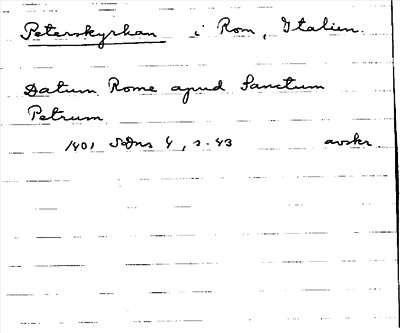 Peterskyrkan i Rom, Italien.
Datum Rome apud Sanctum
Petrum
1401 SDns 4, s. 43 avskr.